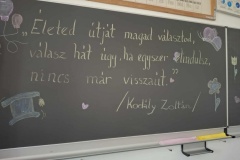 „Életed útját magad választod,
válasz hát úgy, ha egyszer elindulsz,
nincs már visszaút."
/Kodály Zoltán/